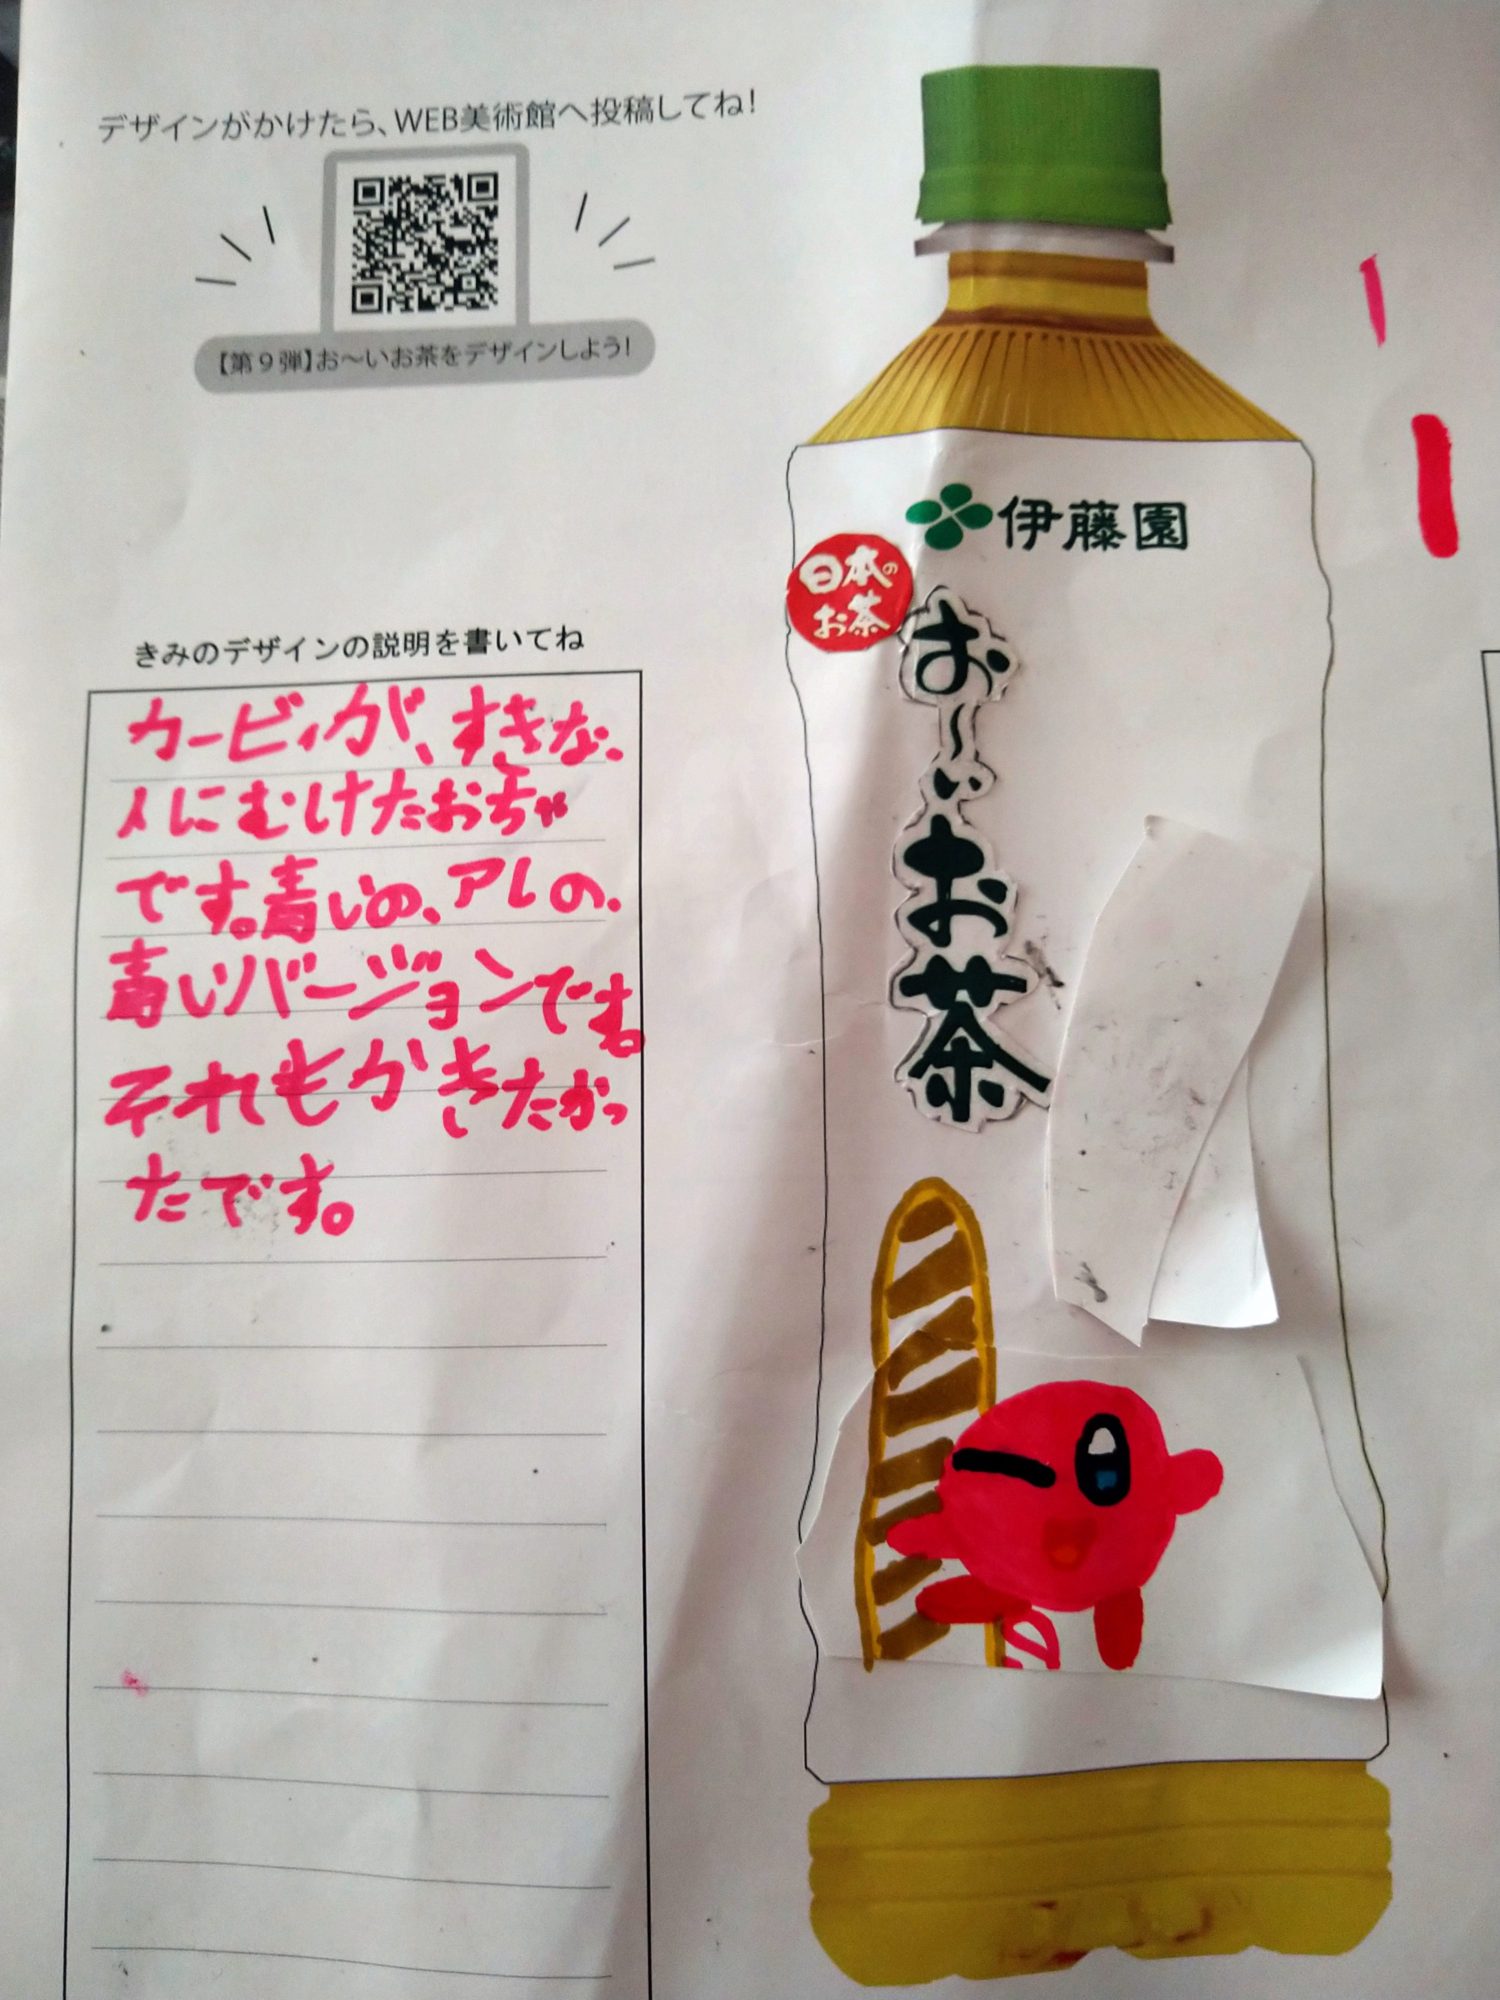 デザインがかけたら、WEB美術館へ投稿してね!
【第9弾】お〜いお茶をデザインしよう!
きみのデザインの説明を書いてね
カービィが、すきな
人にむけたおちゃ
です。青いの、アレの、
青いバージョンです。
それもかきたかっ
たです。
伊藤園
日本の
お茶
お〜いお茶